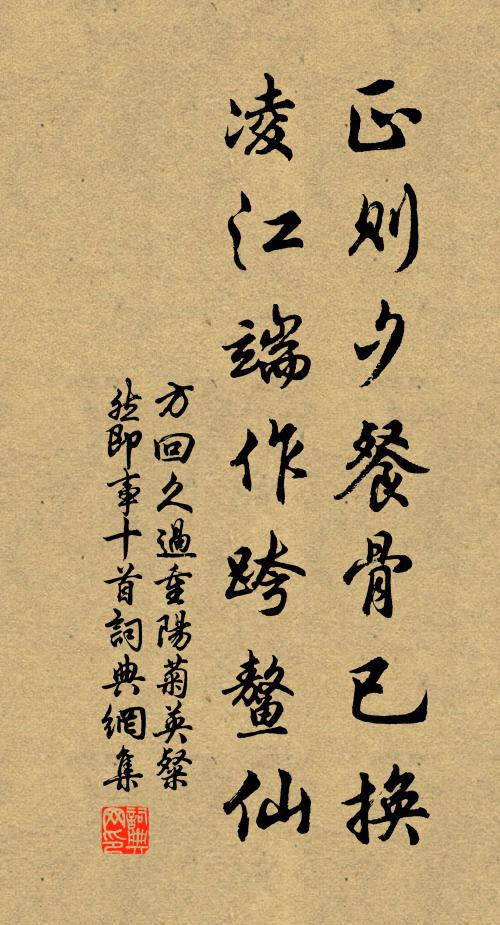 正則夕餐骨已換
凌江端作跨鰲仙
方回久過重陽菊英粲
然即事十首詞典網集
詞典
网印